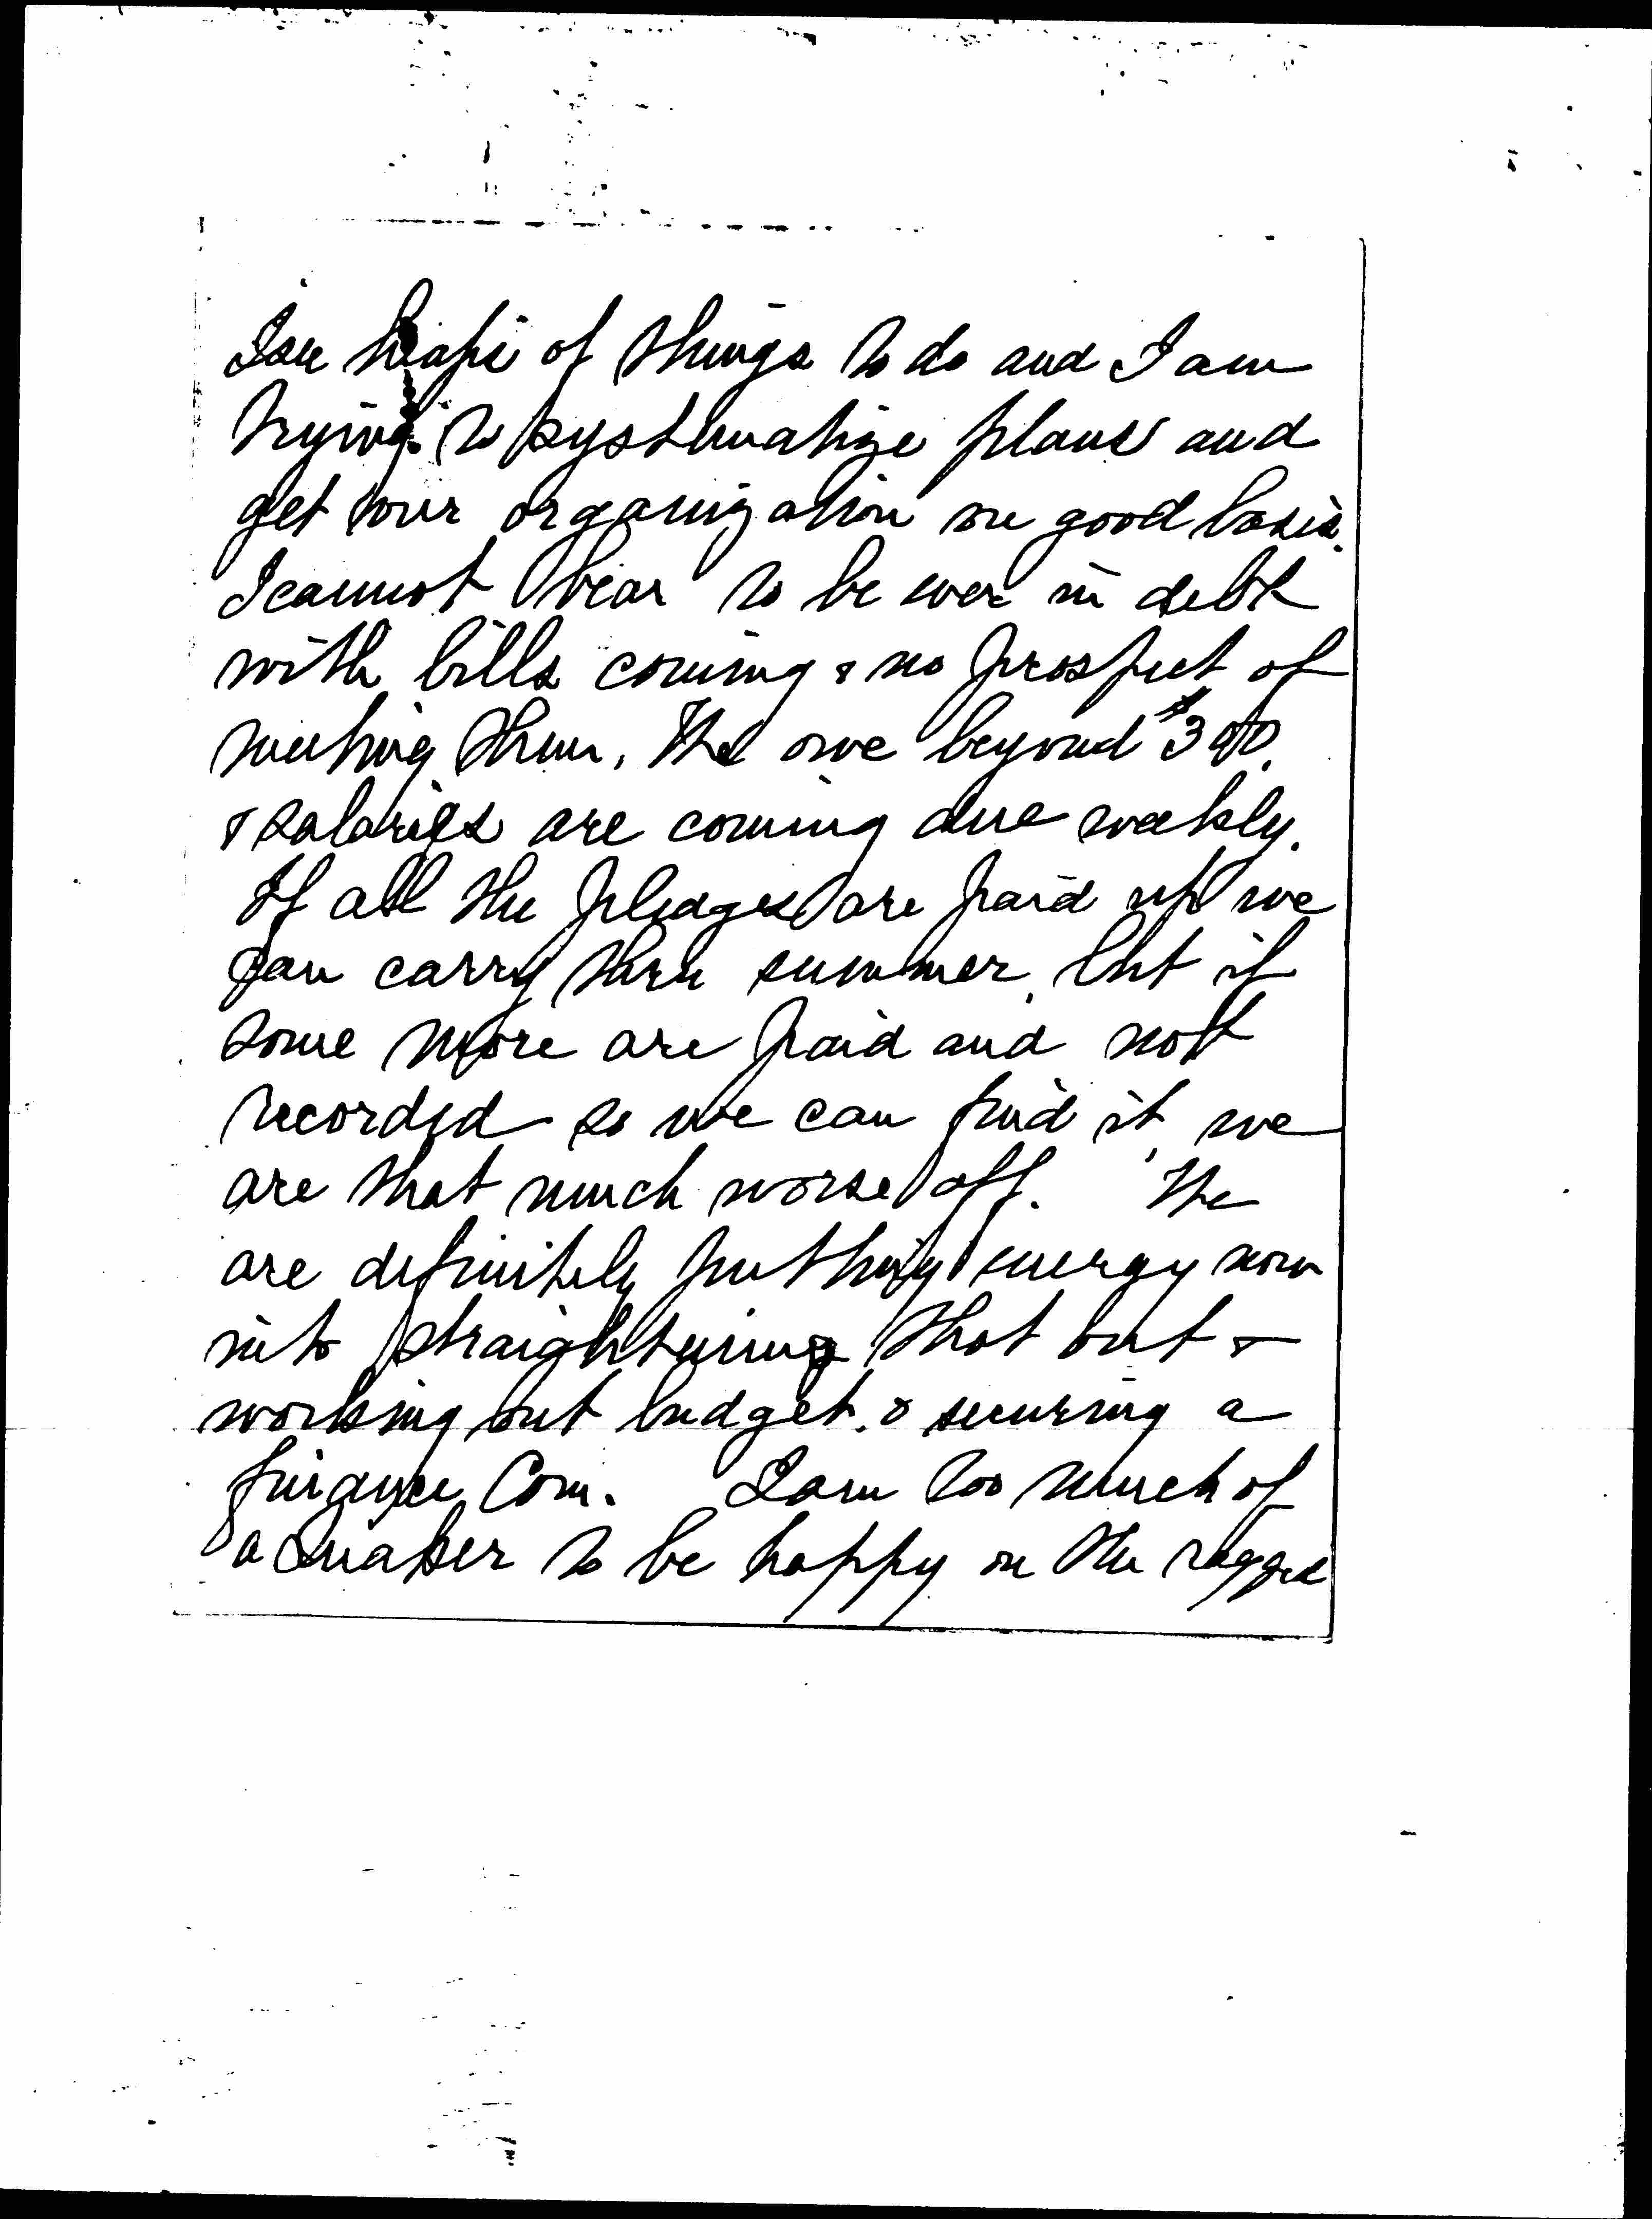 I see heaps of things to do and I am
trying to systematize plans and
get our organization on good basis.
I cannot bear to be ever in debt
with bills coming & no prospect of
meeting them. We owe beyond $300.
& salaries are coming due weekly.
If all the pledges are paid up we
can carry thru summer, but if
some more are paid and not
recorded so we can find it, we
are that much worse off. We
are definitely putting energy now
into straightening that out &
working out budget. & securing a
finance Com. I am too much of
a Quaker to be happy on the ragged